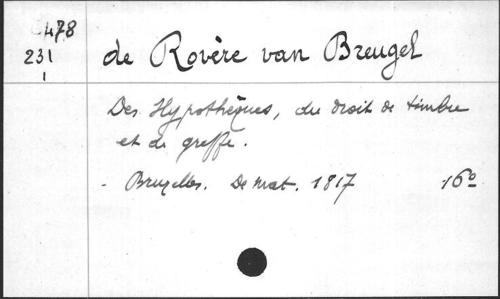 478
231
1
de Rovère van Breugel
Des Hypothèques, du droit de timbre
et de greffe.
- Bruxelles. De mat. 1817 16º